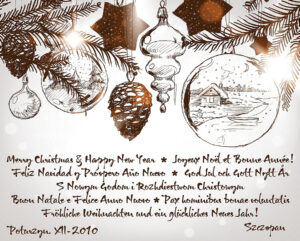 Merry Christmas & Happy New Year ★ Joyeux Noël et Bonne Année!
Feliz Navidad y Próspero Año Nuevo ★ God Jul och Gott Nytt År
S Novym Godom i Rozhdiestwom Christowym
Buon Natale e Felice Anno Nuovo ★ Pax hominibus bonae voluntatis
Fröhliche Weihnachten und ein glückliches Neues Jahr!
Poturzyn. XII-2010
Szczepan